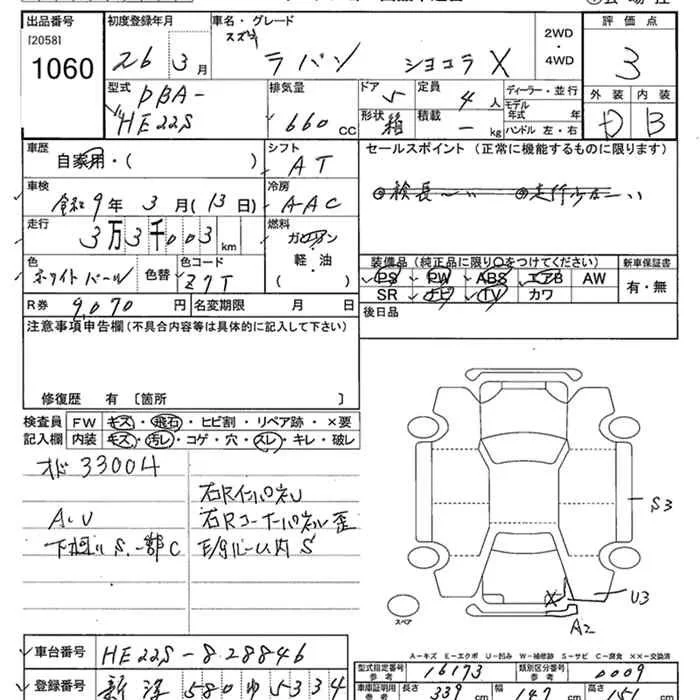 出品番号
[2058]
1060
初度登録年月
26 3月
車名・グレード
スズキ
ラパン ショコラ X
2WD
・
4WD
評価点
3
外装 内装
D B
型式
DBA-
HE22S
排気量
660 cc
ドア
5
定員
4人
形状
箱
積載
- kg
ディーラー・並行
モデル
年式 年
ハンドル 左・右
車歴
自家用・( )
シフト
AT
セールスポイント (正常に機能するものに限ります)
◎検長〜い ◎走行少な〜い
車検
令和9年3月(13日)
冷房
AAC
走行
3万3千003km
燃料
ガソリン
軽・油
( )
色
ホワイトパール
色替
色コード
Z7T
装備品(純正品に限り○をつけてください)
PS PW ABS エアB AW
SR ナビ TV カワ
新車保証書
有・無
R券 9,070円
名変期限 月 日
後日品
注意事項申告欄(不具合内容等は具体的に記入して下さい)
修復歴 有 [箇所 ]
検査員
記入欄
FW キズ・飛石・ヒビ割・リペア跡・×要
内装 キズ・汚レ・コゲ・穴・スレ・キレ・破レ
33004
A.U
下廻りS.一部C
右Rインパネル
右Rコーナーパネル歪
S3
U3
A2
スペア
A-キズ E-エクボ U-凹み W-補修跡 S-サビ C-腐食 XX-交換済
車台番号
HE22S-828846
型式指定番号
参考
16173
類別区分番号
参考
0009
登録番号
新潟 580 ゆ 5334
車庫証明用
参考
長さ 339 cm
幅 147 cm
高さ